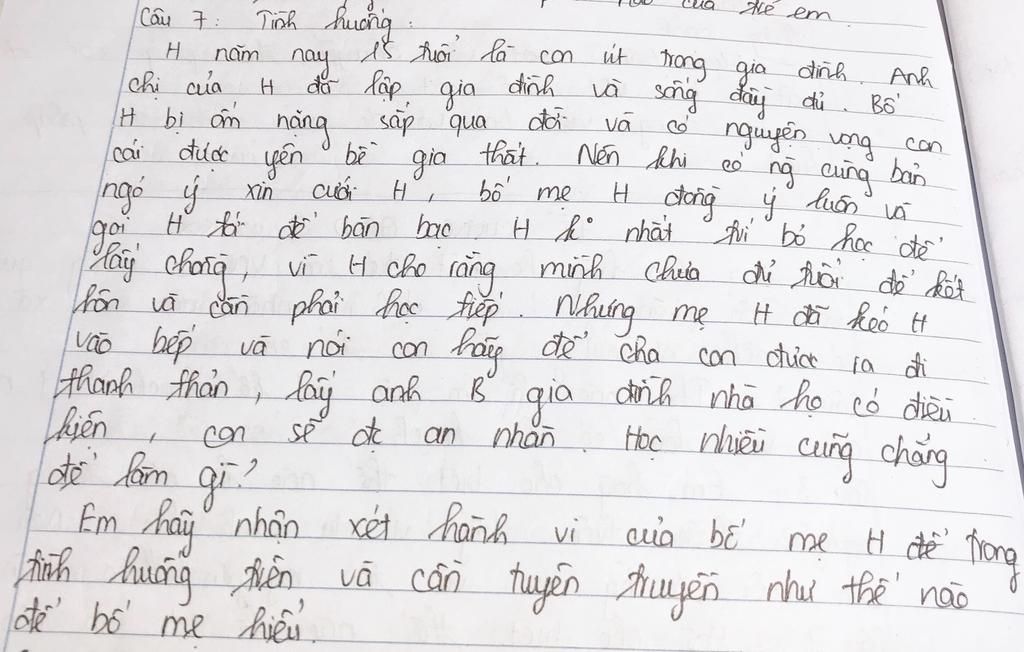 của trẻ em.
Câu 7: Tình huống:
H năm nay 15 tuổi là con út trong gia đình. Anh
chị của H đã lập gia đình và sống đầy đủ. Bố
H bị ốm nặng sắp qua đời và có nguyện vọng con
cái được yên bề gia thất. Nên khi có ng cùng bản
ngỏ ý xin cưới H, bố mẹ H đồng ý luôn và
gọi H tới để bàn bạc. H k nhất trí bỏ học để
lấy chồng, vì H cho rằng mình chưa đủ tuổi để kết
hôn và cần phải học tiếp. Nhưng mẹ H đã kéo H
vào bếp và nói con hãy để cha con được ra đi
thanh thản, lấy anh B gia đình nhà họ có điều
kiện, con sẽ đc an nhàn. Học nhiều cũng chẳng
để làm gì?
Em hãy nhận xét hành vi của bố mẹ H để trong
tình huống trên và cần tuyên truyền như thế nào
để bố mẹ hiểu.